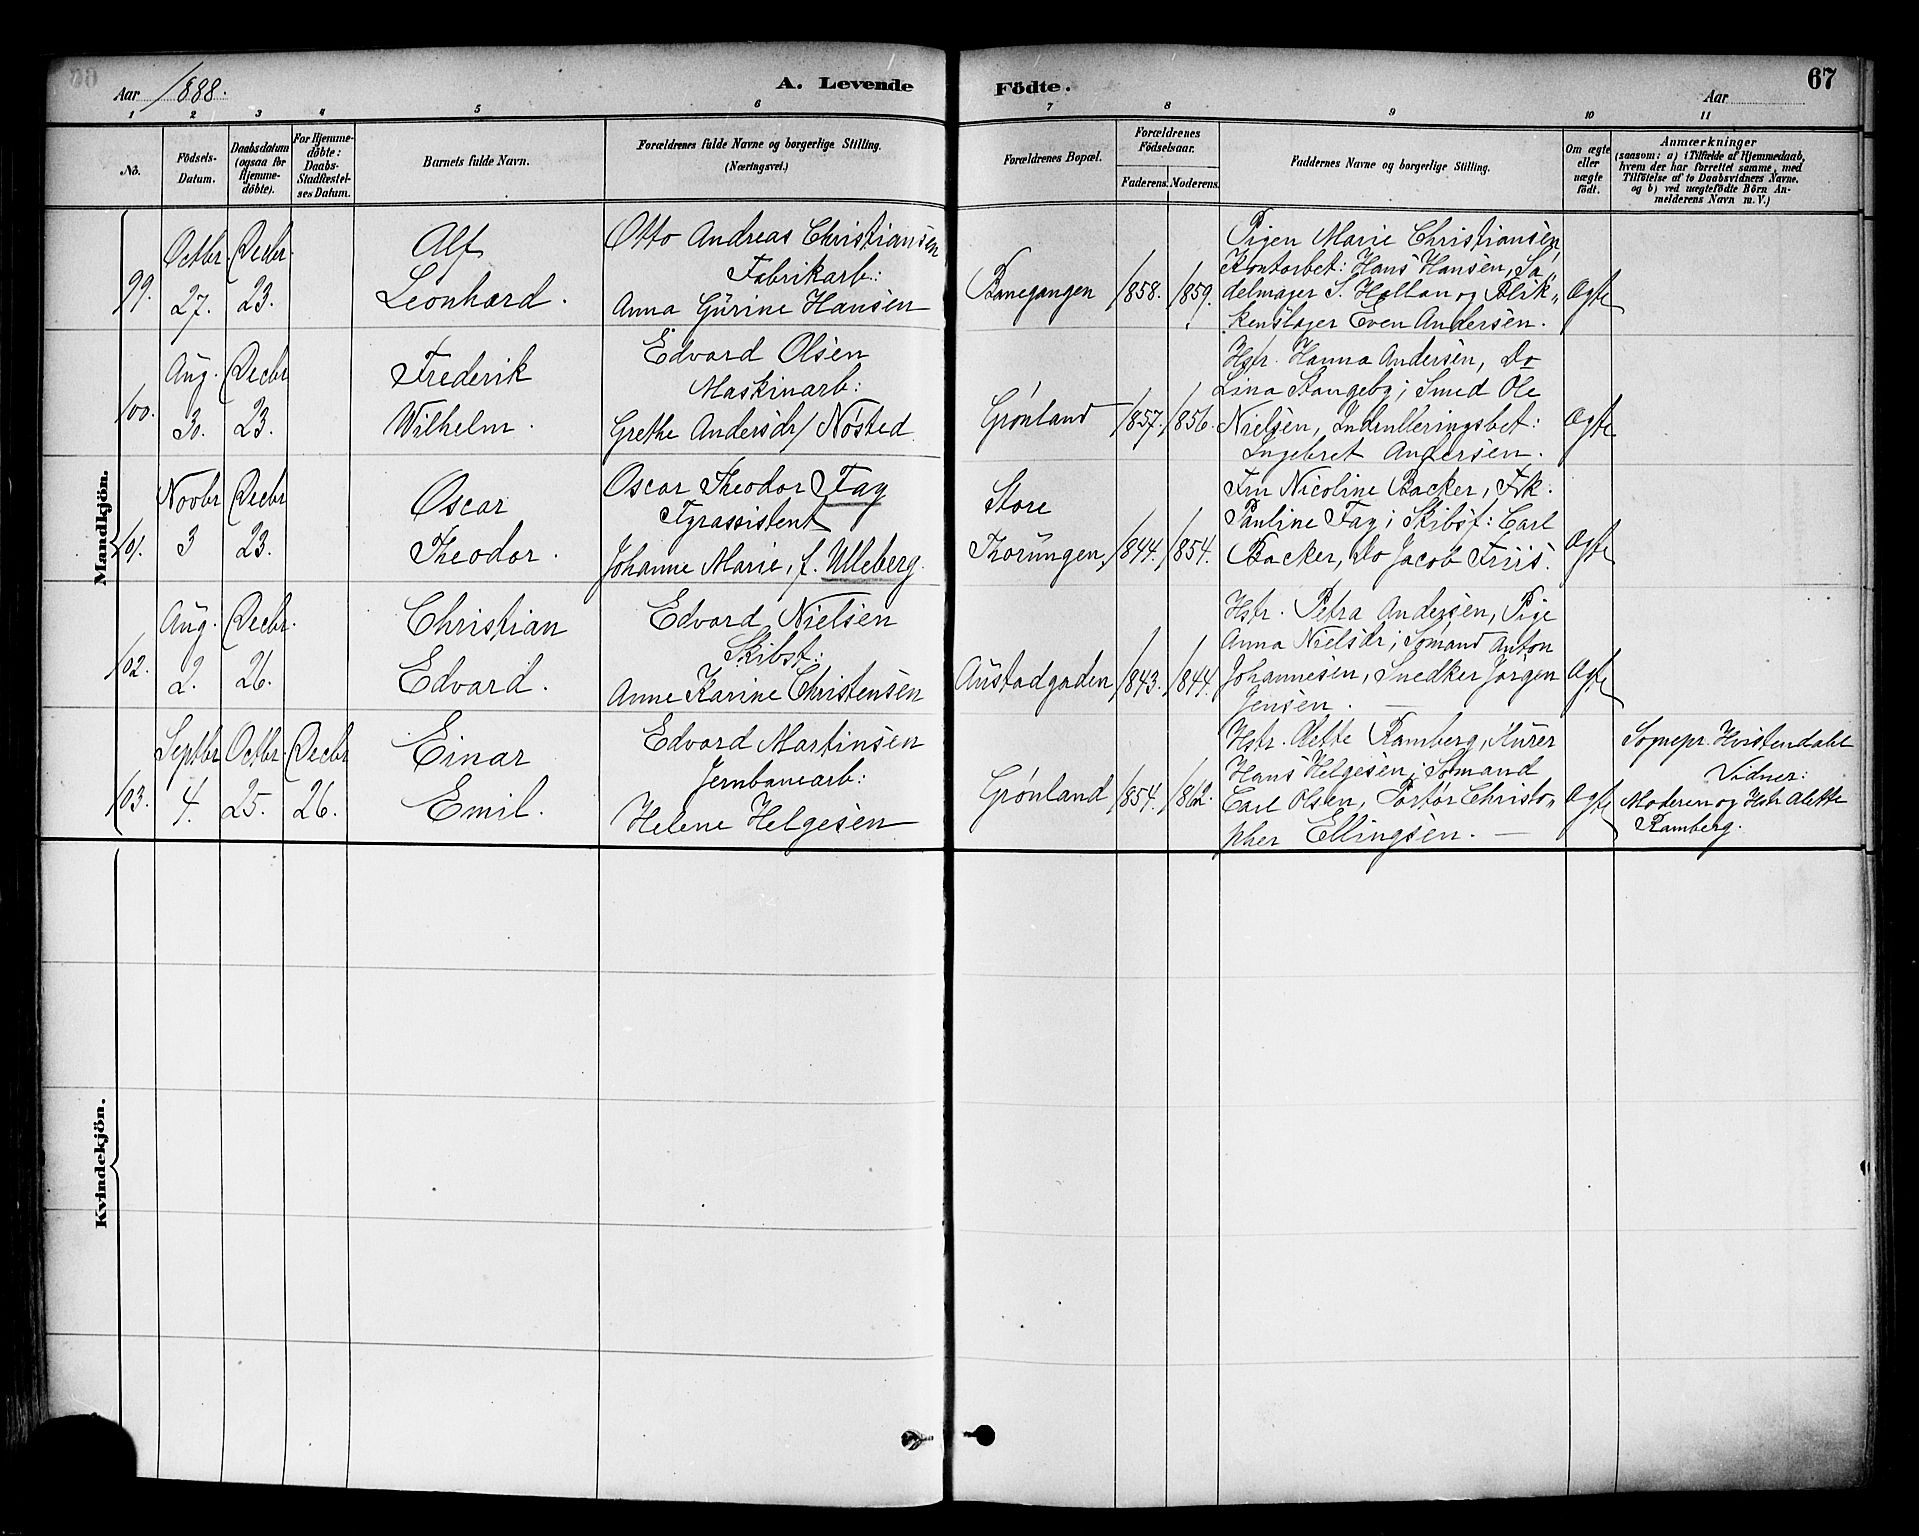 Aar 1888.
A. Levende
1 2 3 4 5 6
No.
Födsels-
Datum.
Daabsdatum
(ogsaa for
Hjemme-
døbte).
For Hjemme-
døbte:
Daabs-
Stadfæstel-
ses Datum.
Barnets fulde Navn.
Forældrenes fulde Navne og borgerlige Stilling.
(Næringsvei.)
Mandkjön.
99.
Octbr.
27.
Decbr.
23.
Alf
Leonhard.
Otto Andreas Christiansen
Fabrikarb:
Anna Gürine Hansen
100.
Aug.
30.
Decbr
23.
Frederik
Wilhelm.
Edvard Olsen
Maskinarb:
Grethe Andersdr/ Nøsted
101.
Novbr
3
Decbr
23.
Oscar
Theodor.
Oscar Theodor Fag
Fyrassistent
Johanne Marie, f. Ulleberg.
102.
Aug.
2.
Decbr.
26.
Christian
Edvard.
Edvard Nielsen
Skibst:
Anne Karine Christensen
103.
Septbr.
4.
Octbr.
25.
Decbr
26.
Einar
Emil.
Edvard Martinsen
Jernbanearb:
Helene Helgesen
Kvindekjön.
Födte.
67
Aar
7 8 9 10 11
Forældrenes Bopæl.
Forældrenes
Födselsaar.
Faderens. Moderens.
Faddernes Navne og borgerlige Stilling.
Om ægte
eller
uægte
födt.
Anmærkninger
(saasom: a) i Tilfælde af Hjemmedaab,
hvem der har forrettet samme, med
Tilføielse af to Daabsvidners Navne,
og b) ved uægtefödte Börn An-
melderens Navn m. V.)
Banegangen
1858.
1859.
Pigen Marie Christiansen
Kontorbet: Hans Hansen, Sa„
delmager S. Hollan og Blik„
kenslager Even Andersen.
Ægte
Grønland
1857.
1856.
Hstr. Hanna Andersen, Do
Lina Stangeby; Smed Ole
Nielsen, Indrulleringsbet:
Ingebret Andersen.
Ægte
Store
Thorüngen,
1844.
1854.
Fru Nicoline Backer, Frk.
Pauline Fag; Skibsf: Carl
Backer, Do Jacob Friis.
Ægte
Aüstadgaden
1843.
1844.
Hstr. Petra Andersen, Pige
Anna Nielsdr; Sømand Anton
Johannesen, Snedker Jörgen
Jensen. —
Ægte
Grønland
1854.
1862.
Hstr. Alette Ramberg, Murer
Hans Helgesen; Sømand
Carl Olsen, Portør Christo„
pher Ellingsen. —
Ægte
Sognepr. Hvistendahl
Vidner:
Moderen og Hstr. Alette
Ramberg.